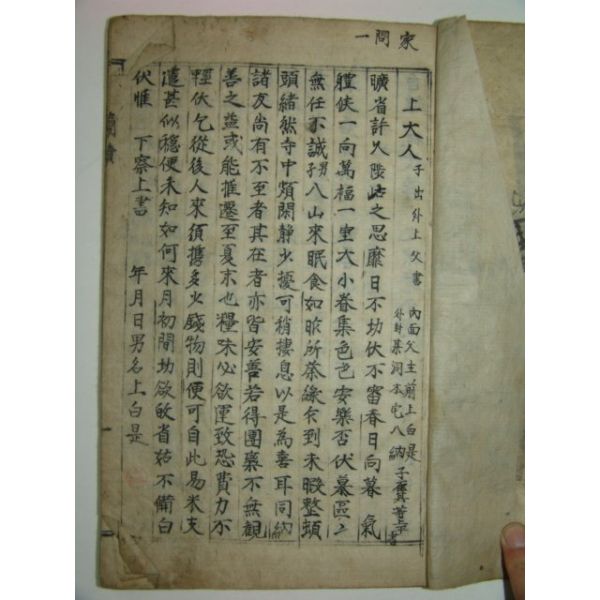 家問一
上大人 子出外上父書 內面父主前上白是
外封某洞本宅入納 子實等平書
曠省許久陟岵之思靡日不切伏不審春日向暮 氣
體候一向萬福一室大小眷集色色安樂否伏慕區區
無任下誠男子入山來眠食如昨所業緣今到未暇整頓
頭緖然寺中頗閑靜少擾可稍捿息以是爲喜耳同納
諸友尙有不至者其在者亦皆安善若得團聚不無觀
善之益或能推遷至夏末也糧味必欲運致恐費力不
輕伏乞從後人來須携多少錢物則便可自此易米支
遣甚似穩便未知如何來月初間切欲敀省姑不備白
伏惟 下察上書 年月日男名上白是